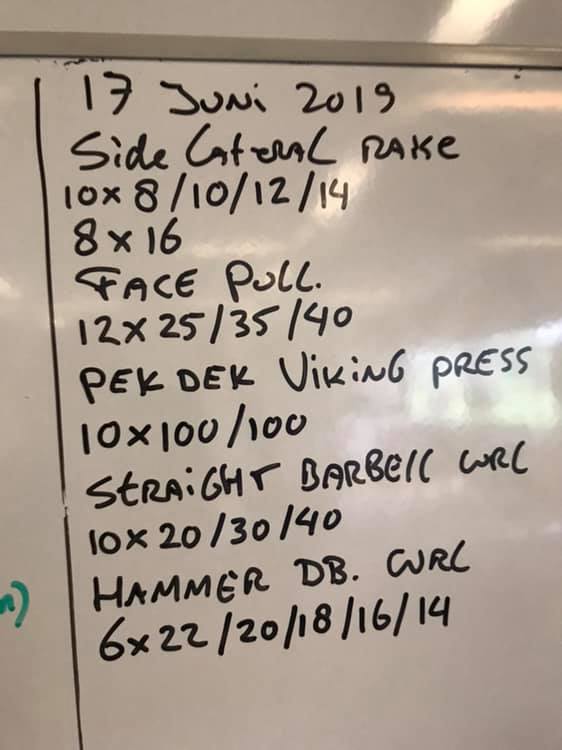 17 Juni 2019
Side Lateral RAKE
10x 8/10/12/14
8x16
FACE PULL.
12x25/35/40
PEK DEK ViKiNG PRESS
10x100/100
STRAiGHT BARBELL CURL
10x20/30/40
HAMMER DB. CURL
6x22/20/18/16/14